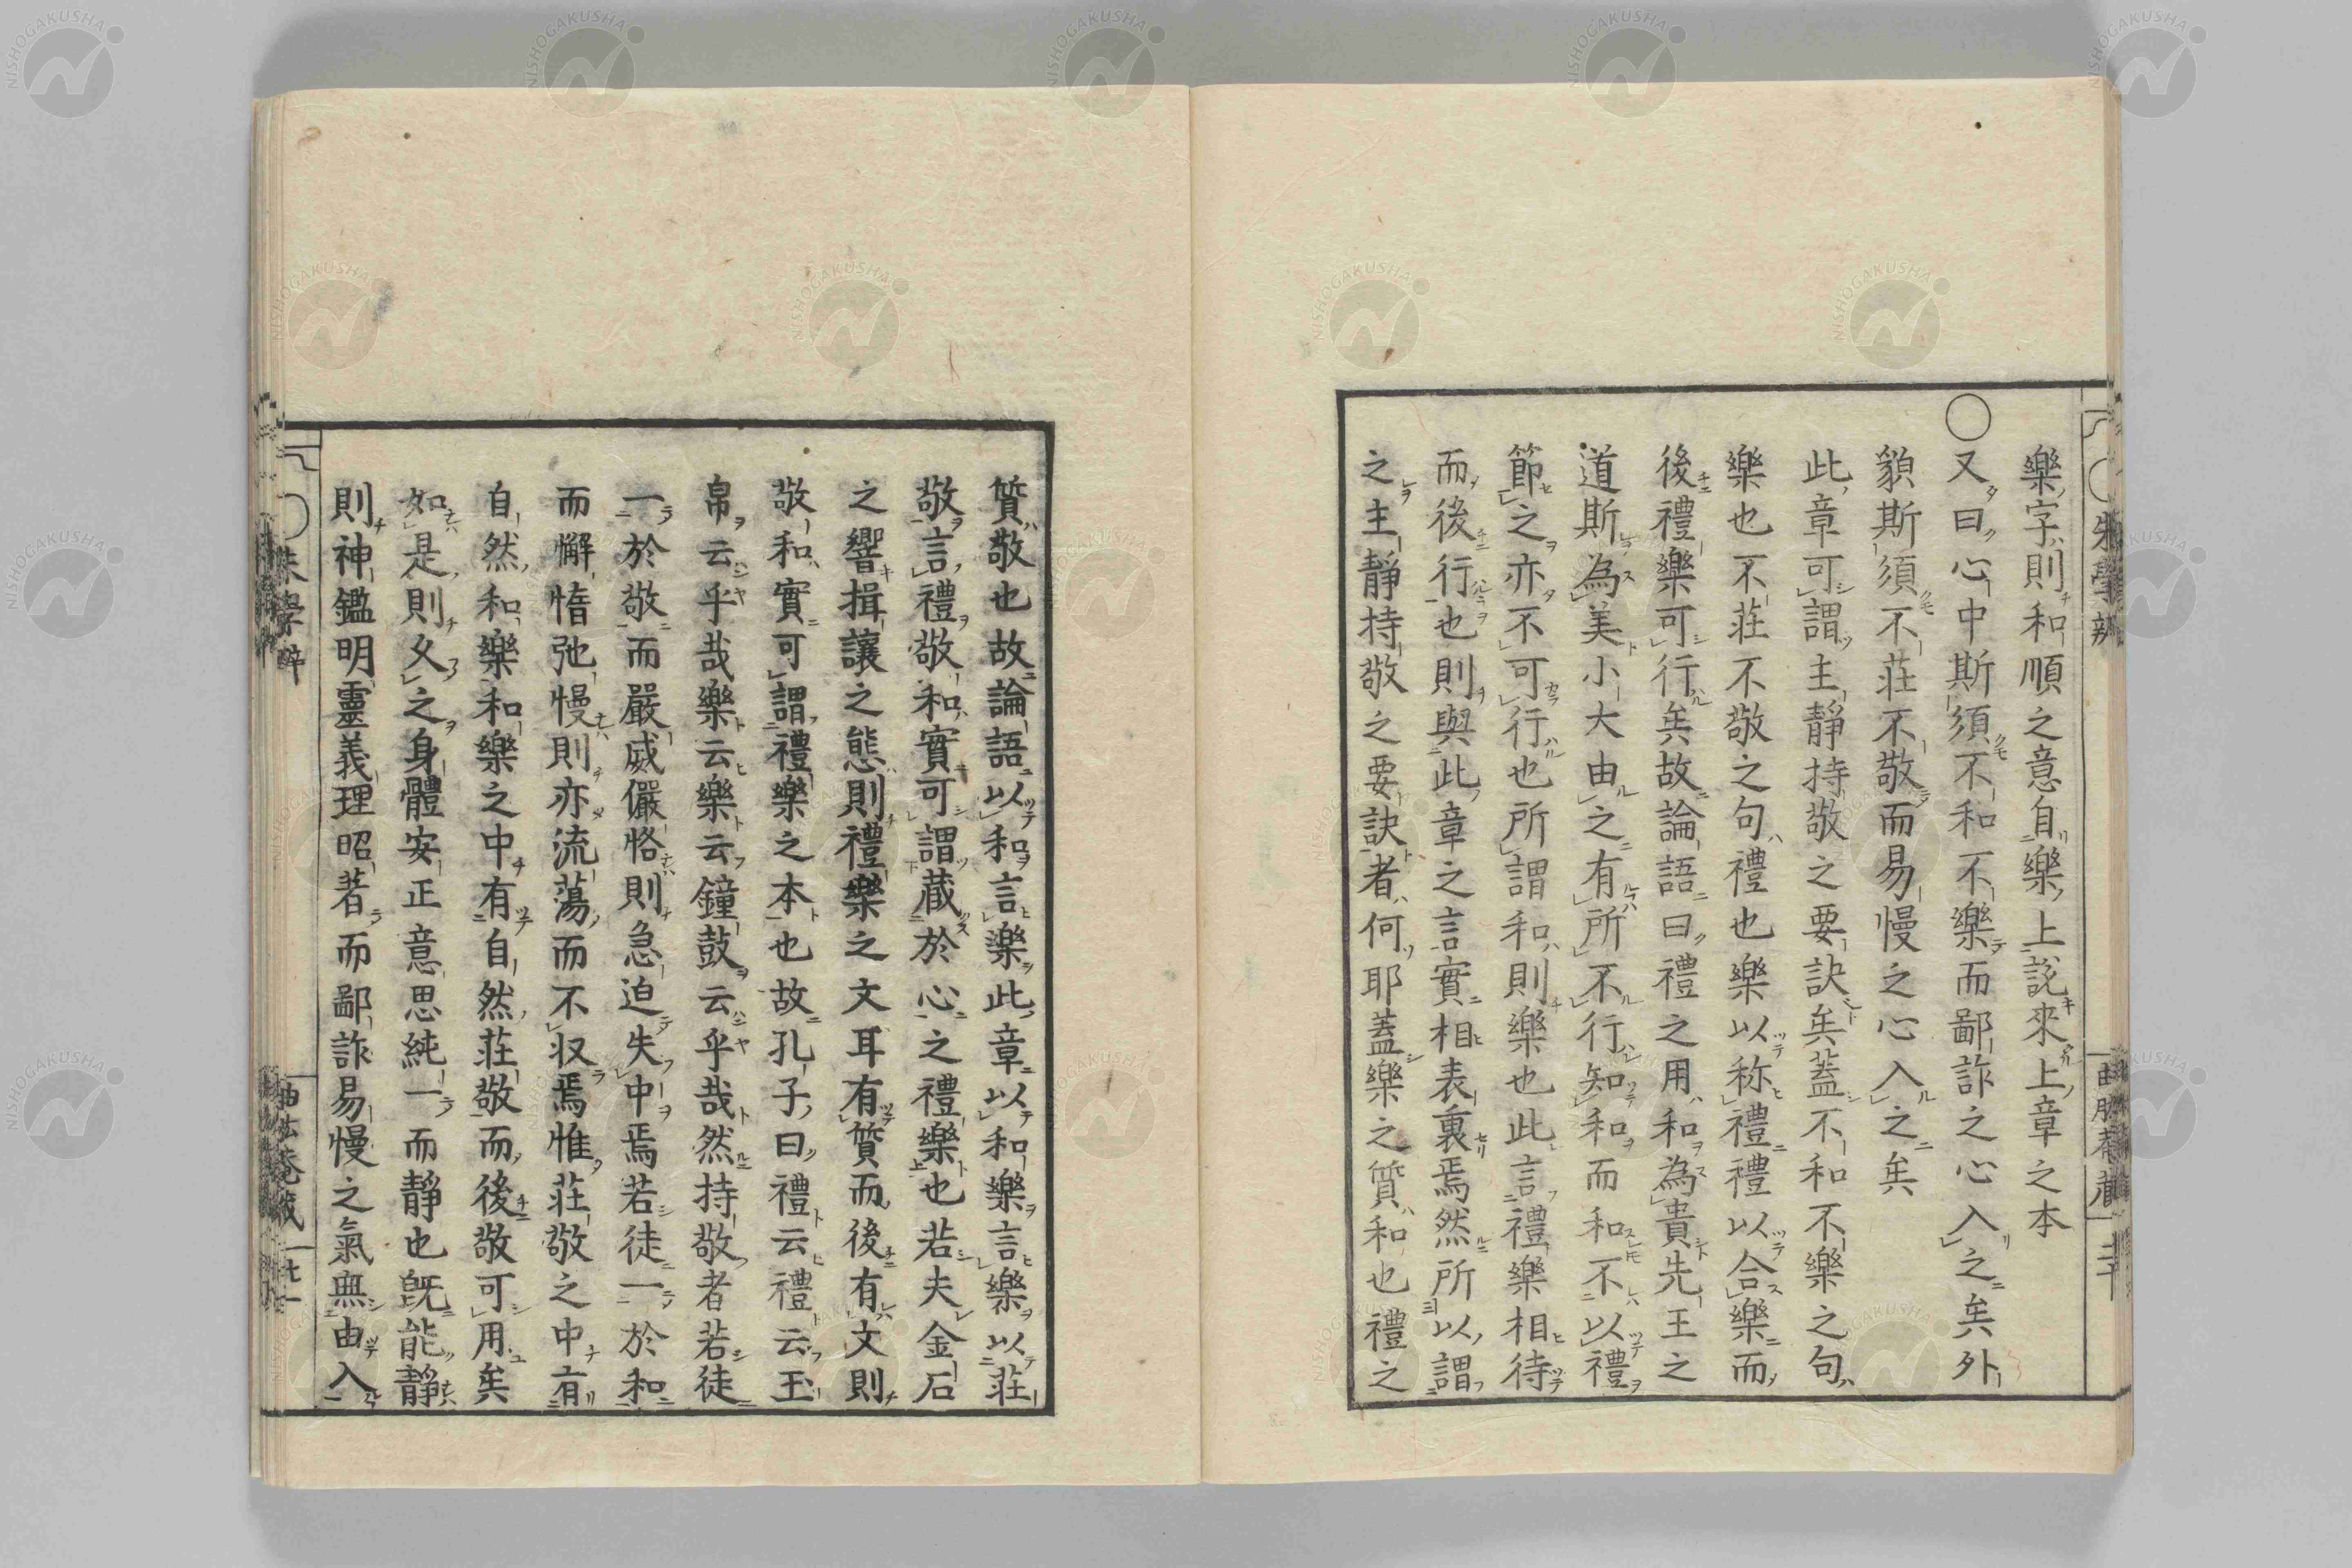 樂字則和順之意自樂上說來上章之本
○又曰心中斯須不和不樂而鄙詐之心入之矣外
貌斯須不莊不敬而易慢之心入之矣
此章可謂主靜持敬之要訣矣蓋不和不樂之句
樂也不莊不敬之句禮也樂以称禮禮以合樂而
後禮樂可行矣故論語曰禮之用和為貴先王之
道斯為美小大由之有所不行知和而和不以禮
節之亦不可行也所謂和則樂也此言禮樂相待
而後行也則與此章之言實相表裏焉然所以謂
之主靜持敬之要訣者何耶蓋樂之質和也禮之
質敬也故論語以和言樂此章以和樂言樂以莊
敬言禮敬和實可謂蔵於心之禮樂也若夫金石
之響揖讓之態則禮樂之文耳有質而後有文則
敬和實可謂禮樂之本也故孔子曰禮云禮云玉
帛云乎哉樂云樂云鐘鼓云乎哉然持敬者若徒
一於敬而嚴威儼恪則急迫失中焉若徒一於和
而懈惰弛慢則亦流蕩而不収焉惟莊敬之中有
自然和樂和樂之中有自然莊敬而後敬可用矣
如是則久之身體安正意思純一而靜也既能靜
則神鑑明靈義理昭著而鄙詐易慢之氣無由入